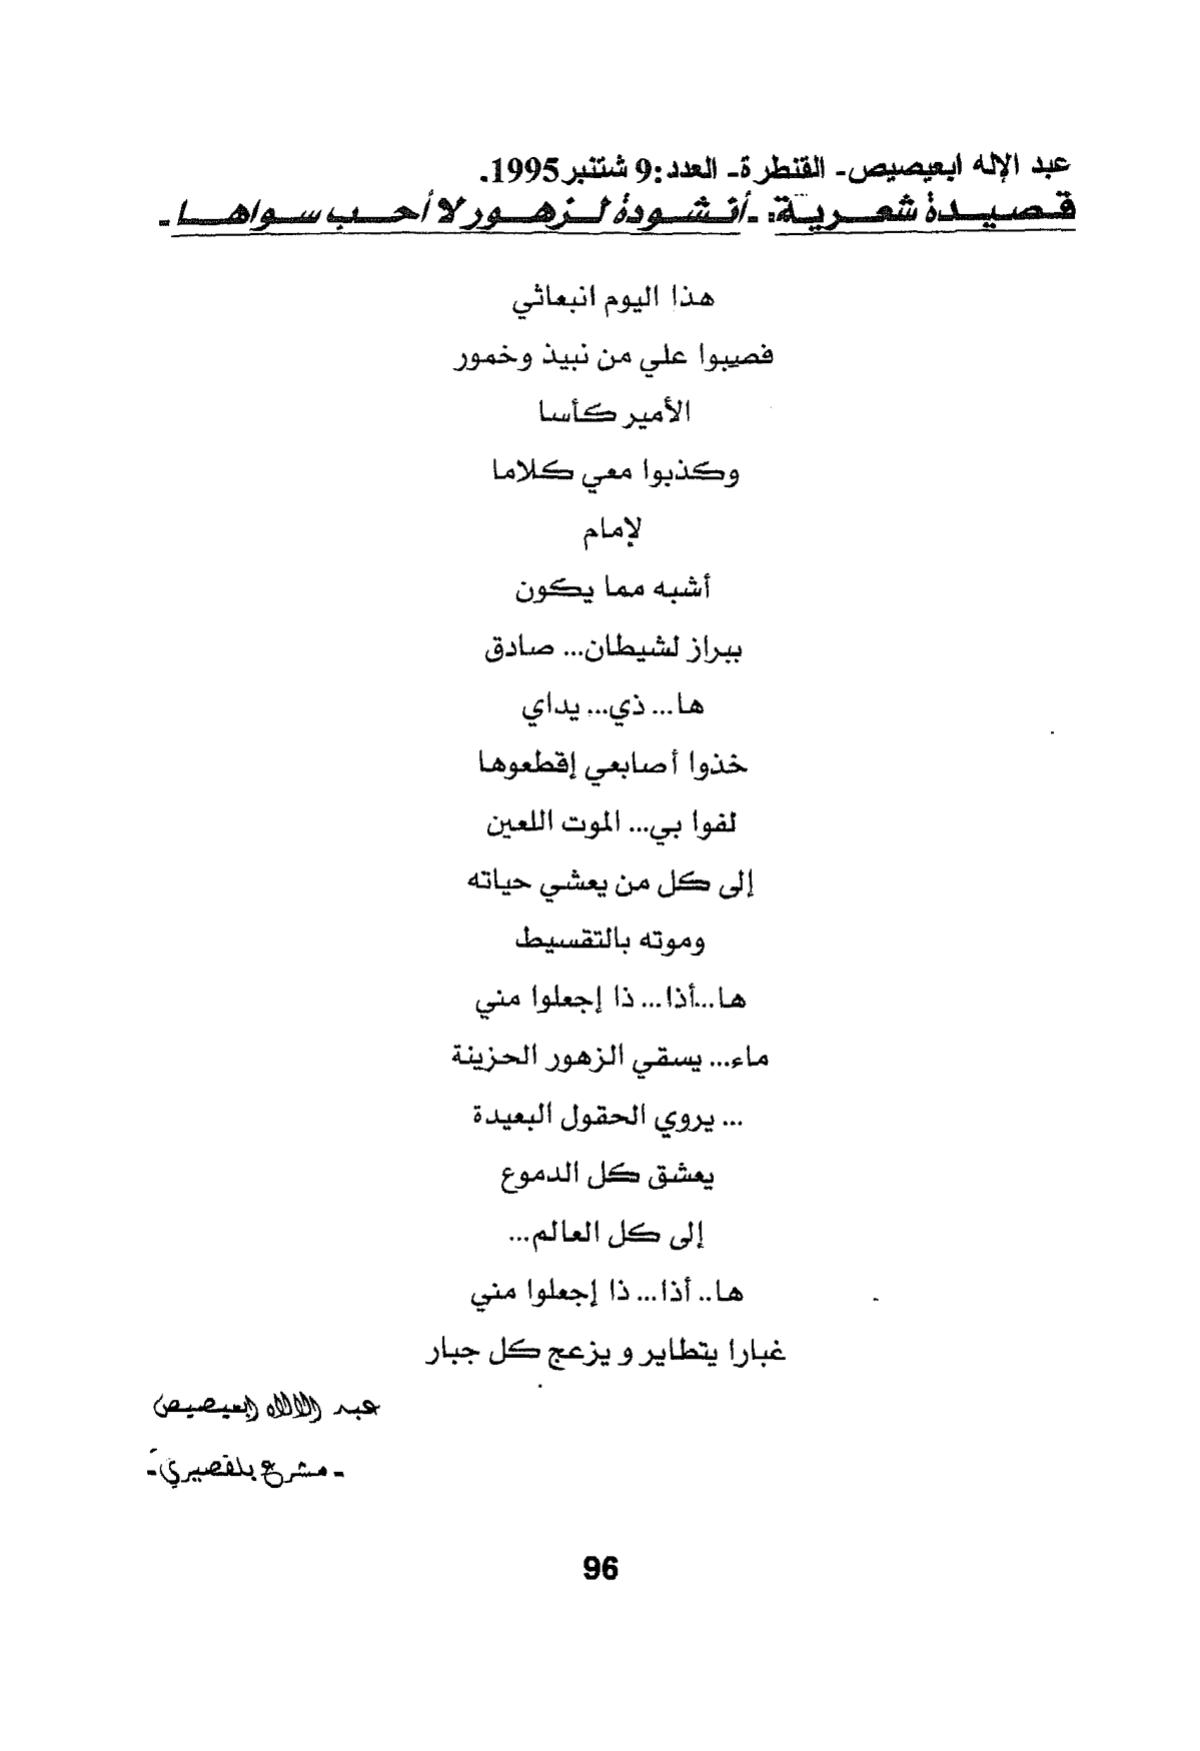 عبد الإله ابعيصيص- القنطرة- العدد:9 شتنبر1995.
قصيدة شعرية: -أنشودة لزهور لا أحب سواها-
هذا اليوم انبعاثي
فصيبوا علي من نبيذ وخمور
الأمير كأسا
وكذبوا معي كلاما
لإمام
أشبه مما يكون
ببراز لشيطان... صادق
ها... ذي... يداي
خذوا أصابعي إقطعوها
لفوا بي... الموت اللعين
إلى كل من يعشي حياته
وموته بالتقسيط
ها...أذا... ذا إجعلوا مني
ماء... يسقي الزهور الحزينة
... يروي الحقول البعيدة
يعشق كل الدموع
إلى كل العالم...
ها.. أذا... ذا إجعلوا مني
غبارا يتطاير و يزعج كل جبار
عبد الالاه ابعيصيص
- مشرع بلقصيري-
96